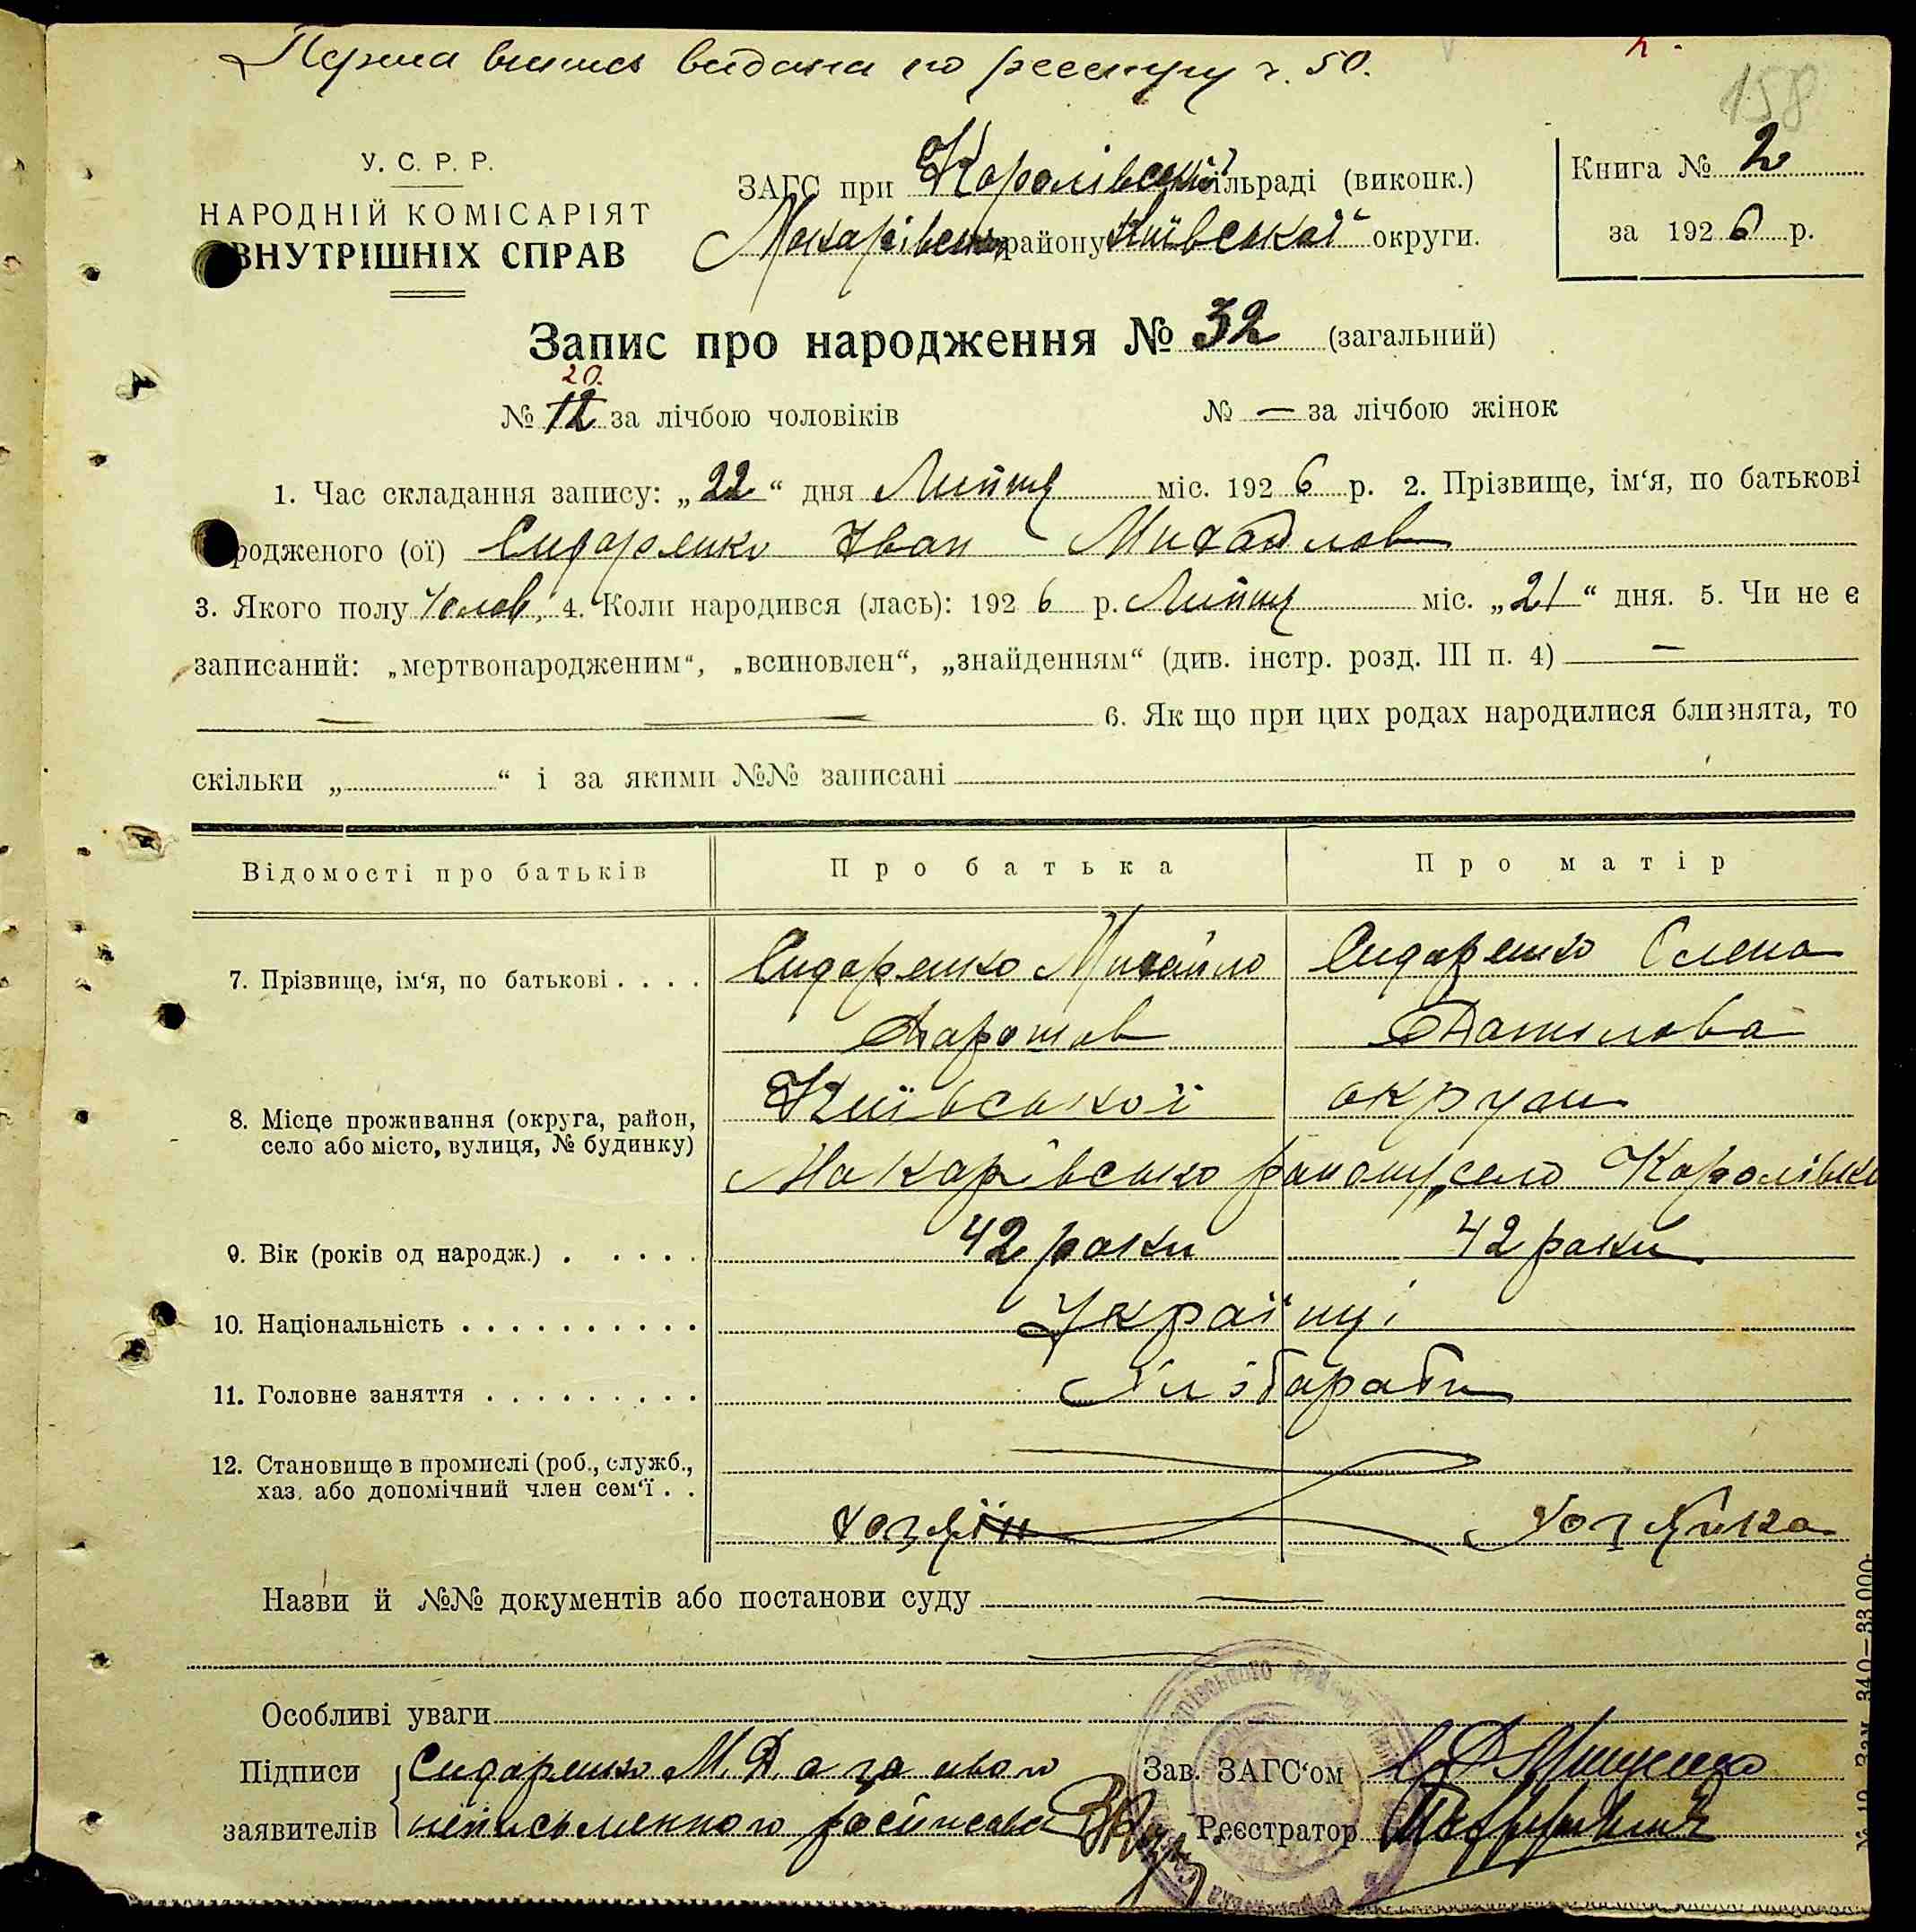 Перша випись видана по реєстру ч. 50.
158
У. С. Р. Р.
НАРОДНІЙ КОМІСАРІЯТ
ВНУТРІШНІХ СПРАВ
ЗАГС при Королівській сільраді (виконк.)
Макарівськ району Київської округи.
Книга № 2
за 1926 р.
Запис про народження № 32 (загальний)
20.
№ 12 за лічбою чоловіків № — за лічбою жінок
1. Час складання запису: „22“ дня Липня міс. 1926 р. 2. Прізвище, ім‘я, по батькові
родженого (ої) Сидоренко Іван Михайлов
3. Якого полу Чолов, 4. Коли народився (лась): 1926 р. Липня міс. „21“ дня. 5. Чи не є
записаний: „мертвонародженим“, „всиновлен“, „знайденням“ (див. інстр. розд. III п. 4) —
6. Як що при цих родах народилися близнята, то
скільки „ “ і за якими №№ записані
Відомості про батьків Про батька Про матір
7. Прізвище, ім‘я, по батькові . . . . Сидоренко Михайло Сидоренко Олена
Дорошов Данилова
8. Місце проживання (округа, район, село або місто, вулиця, № будинку) Київської округи
Макарівсько району, село Королівка
9. Вік (років од народж.) . . . . . 42 роки 42 роки
10. Національність . . . . . . . . . . Українці
11. Головне заняття . . . . . . . . . Хлібороби
12. Становище в промислі (роб., служб.,
хаз. або допомічний член сем‘ї . . Хозяїн Хозяйка
Назви й №№ документів або постанови суду
Особливі уваги
Підписи Сидоренко М. Д. а за його Зав. ЗАГС‘ом
заявителів неписьменного росписався Реєстратор
№ 10 Зам. 340—33.000.